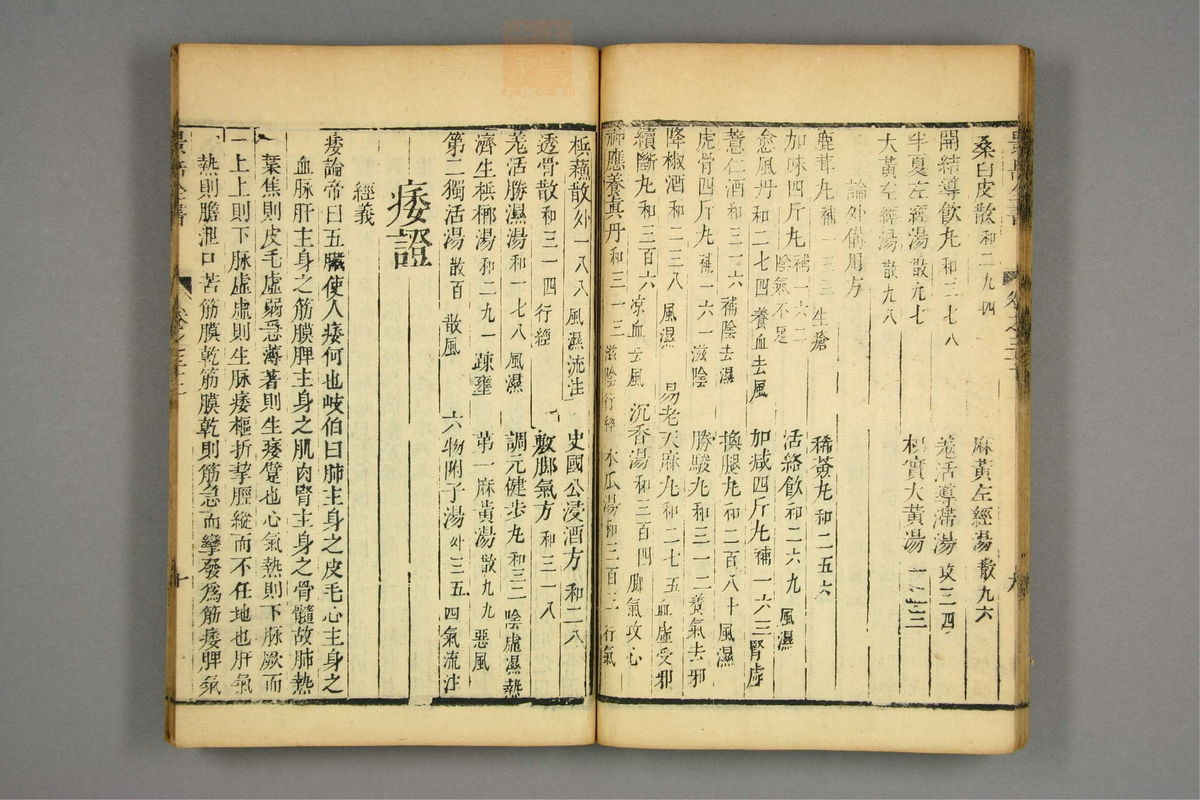 桑白皮散 和二九四 麻黃左經湯 散九六
開結導飲丸 和三七八 羗活導滯湯 攻三四
半夏左經湯 散九七 枳實大黃湯
大黃左經湯 散九八
論外備用方
鹿茸丸 補一三三 生瘡 稀薟丸 和二五六
加味四斤丸 補一六二 陰氣不足 活絡飲 和二六九 風濕
愈風丹 和二七四 養血去風 加減四斤丸 補一六三 腎虛
薏仁酒 和二三六 補陰去濕 換腿丸 和二百八十 風濕
虎骨四斤丸 補一六一 滋陰 勝駿丸 和三一二 養氣去邪
降椒酒 和二三八 風濕 易老天麻丸 和二七五 血虛受邪
續斷丸 和三百六 凉血去風 沉香湯 和三百四 脚氣攻心
神應養真丹 和三一三 滋陰行經 木瓜湯 和三百三 行氣
檳蘓散 外一八八 風濕流注 史國公浸酒方 和二八
透骨散 和三一四 行經 敷脚氣方 和三一八
羗活勝濕湯 和一七八 風濕 調元健步丸 和三三 陰虛濕熱
濟生檳榔湯 和二九一 疎壅 第一麻黃湯 散九九 惡風
第二獨活湯 散百 散風 六物附子湯 外三五 四氣流注
痿證
經義
痿論帝曰五臟使人痿何也岐伯曰肺主身之皮毛心主身之
血脉肝主身之筋膜脾主身之肌肉腎主身之骨髓故肺熱
葉焦則皮毛虛弱急薄著則生痿躄也心氣熱則下脉厥而
上上則下脉虛虛則生脉痿樞折挈脛縱而不任地也肝氣
熱則膽泄口苦筋膜乾筋膜乾則筋急而攣發爲筋痿脾氣